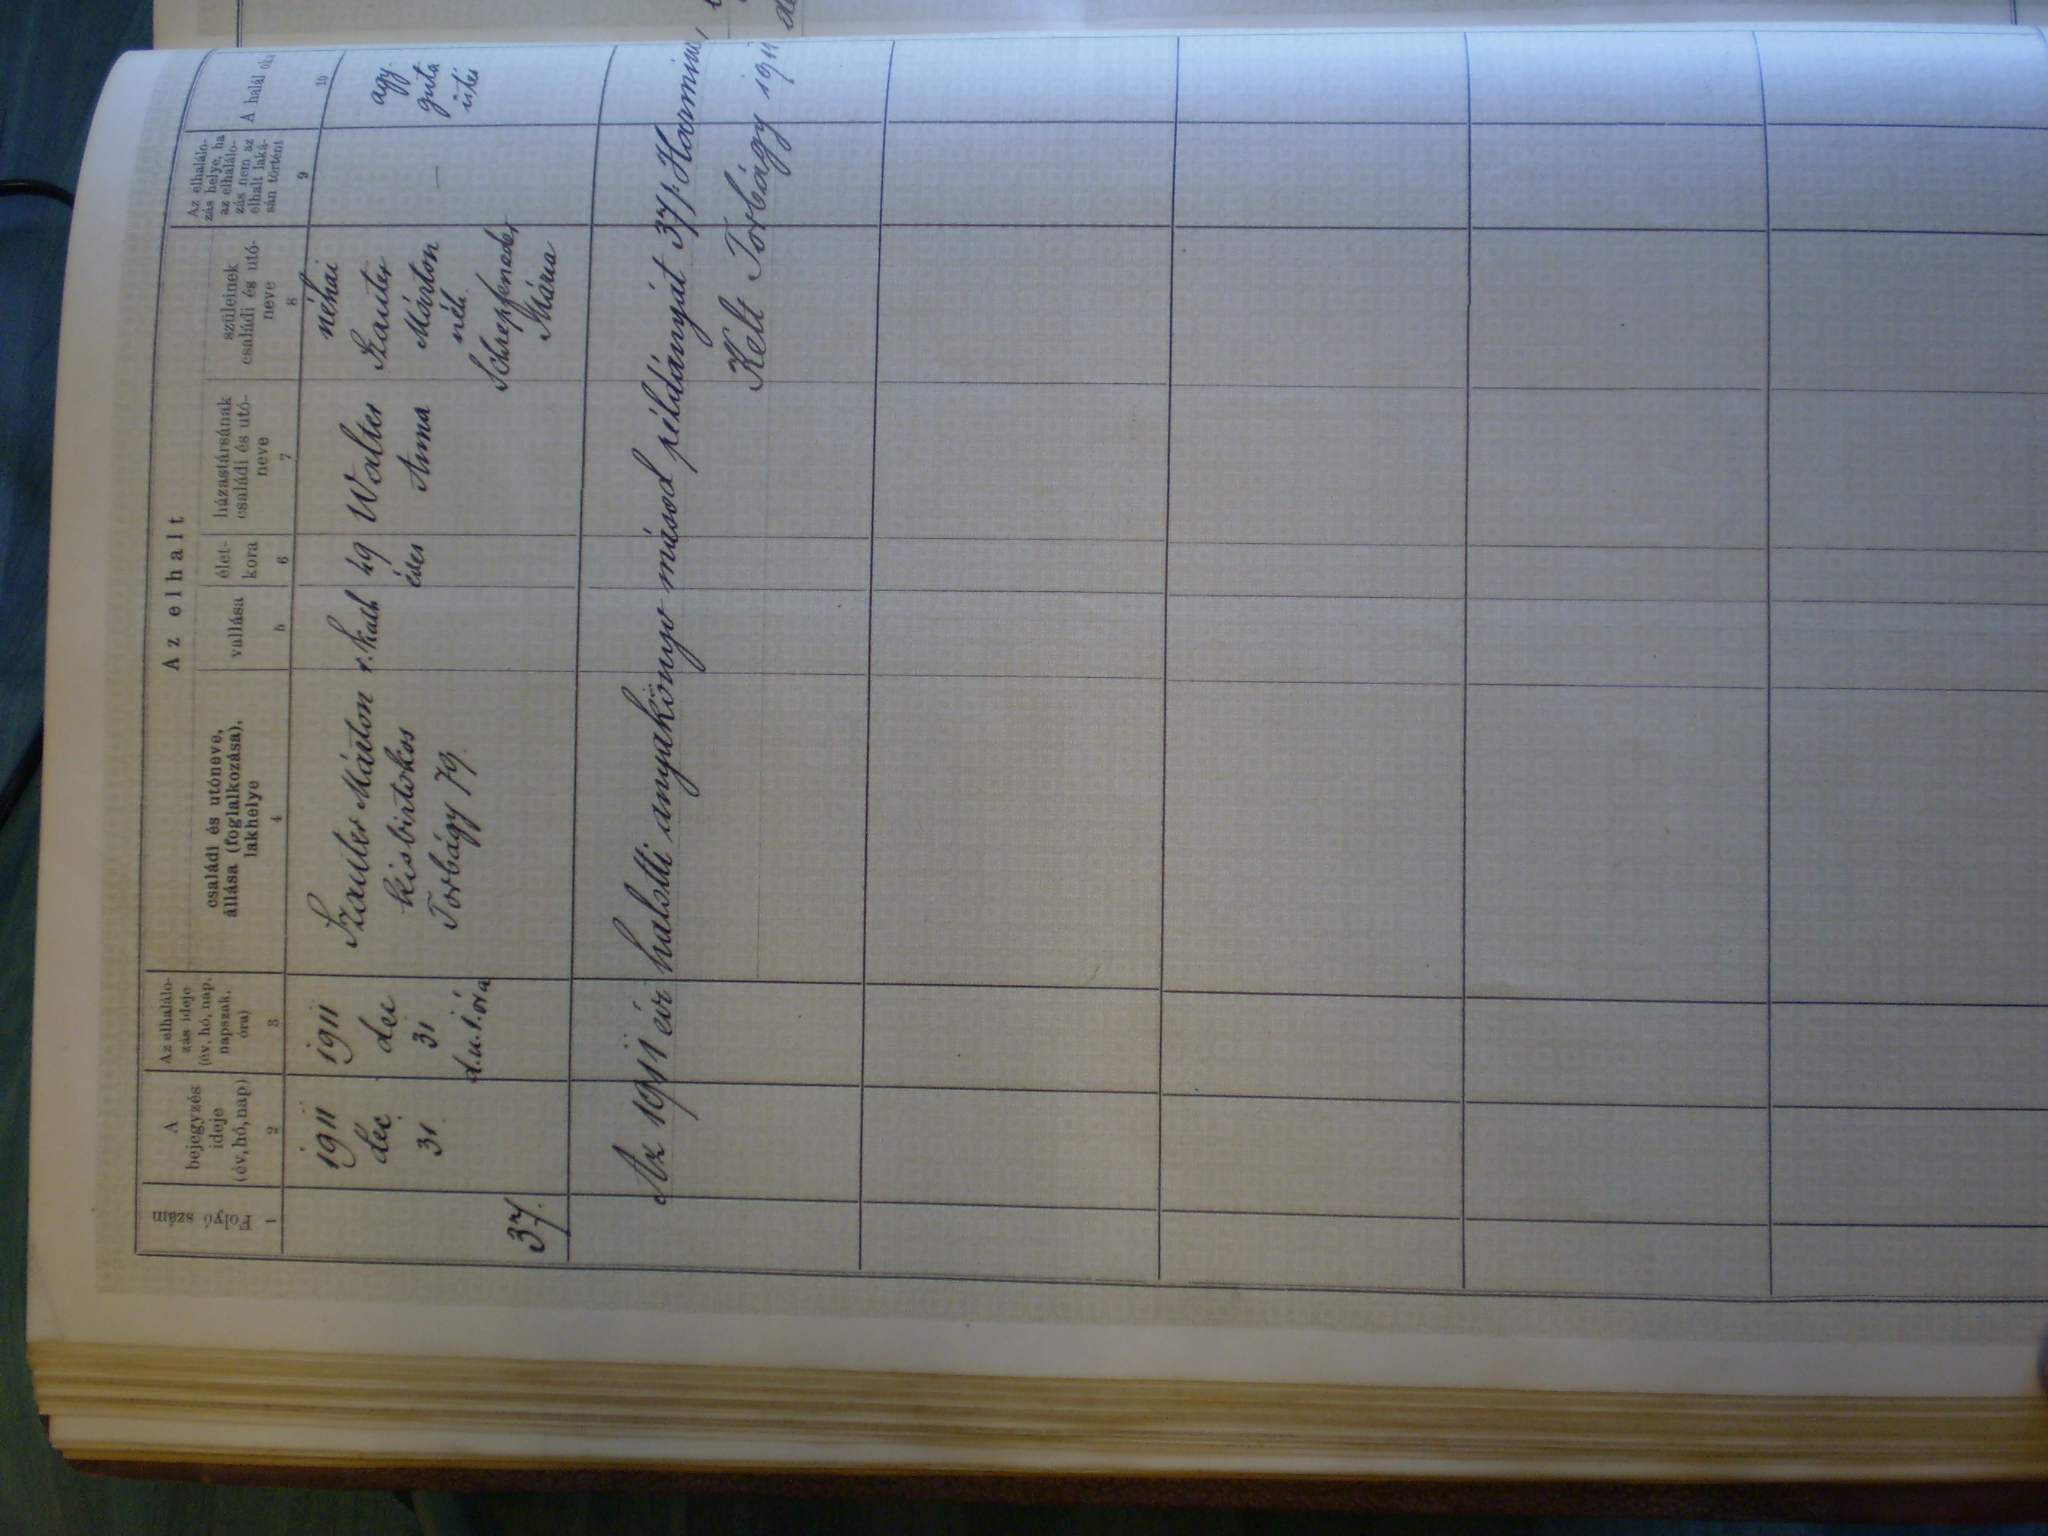 Az elhalt
Folyó szám
1
A
bejegyzés
ideje
(év, hó, nap)
2
Az elhalálo-
zás ideje
(év, hó, nap,
napszak,
óra)
3
családi és utóneve,
állása (foglalkozása),
lakhelye
4
vallása
5
élet-
kora
6
házastársának
családi és utó-
neve
7
szüleinek
családi és utó-
neve
8
Az elhalálo-
zás helye, ha
az elhálálo-
zás nem az
elhalt laká-
sán történt
9
A halál oka
10
37.
1911
dec.
31.
1911
dec
31
d.u.1.óra
Szauter Márton
kisbirtokos
Torbágy 79.
r. kath
49
éves
Walter
Anna
néhai
Szauter
Márton
néh.
Mária
—
agy.
guta
ütés
Az 1911 évi halotti anyakönyv másod példányát 37/.
Kelt Torbágy 1911